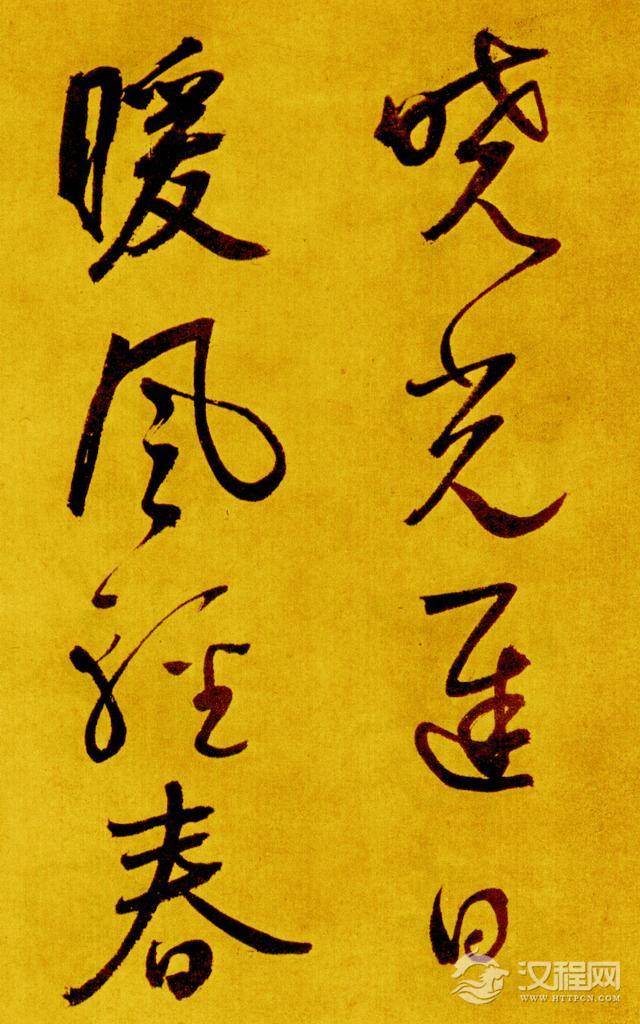 曉光遲日
暖風輕春
汉程网
WWW.HTTPCN.COM